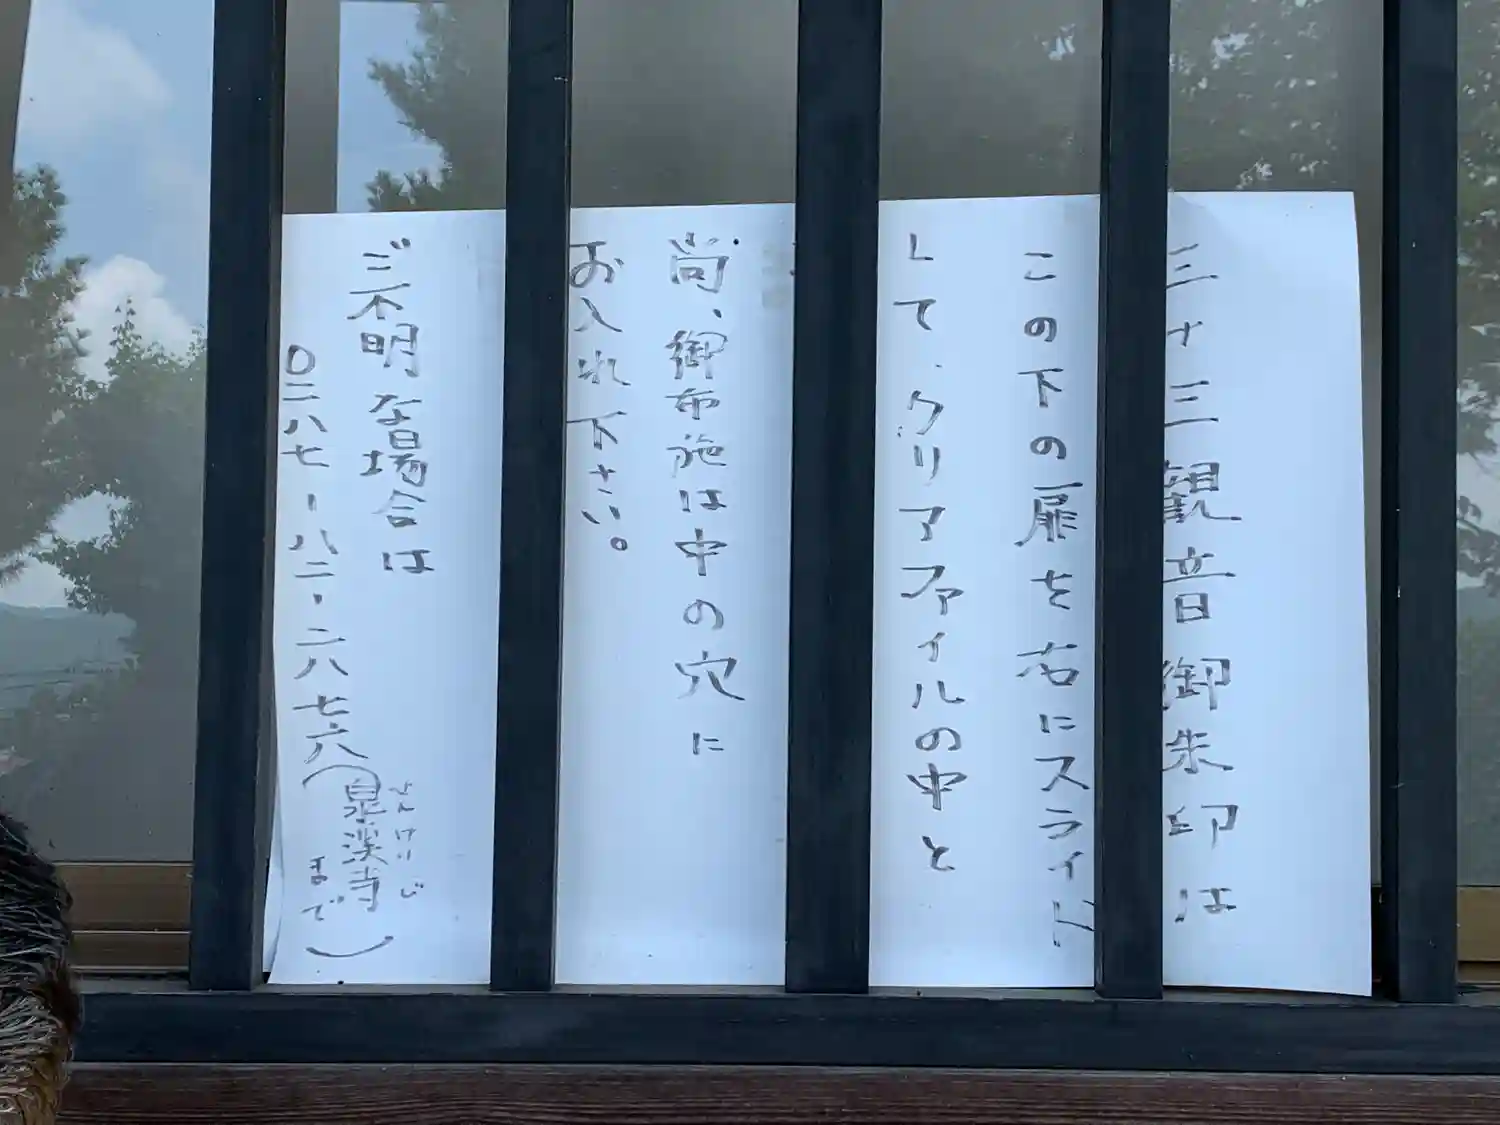 三十三観音御朱印は
この下の扉を右にスライド
して、クリアファイルの中と
尚、御布施は中の穴に
お入れ下さい。
ご不明な場合は
〇二八七ー八二ー二八七六(泉溪寺まで)
せんけいじ